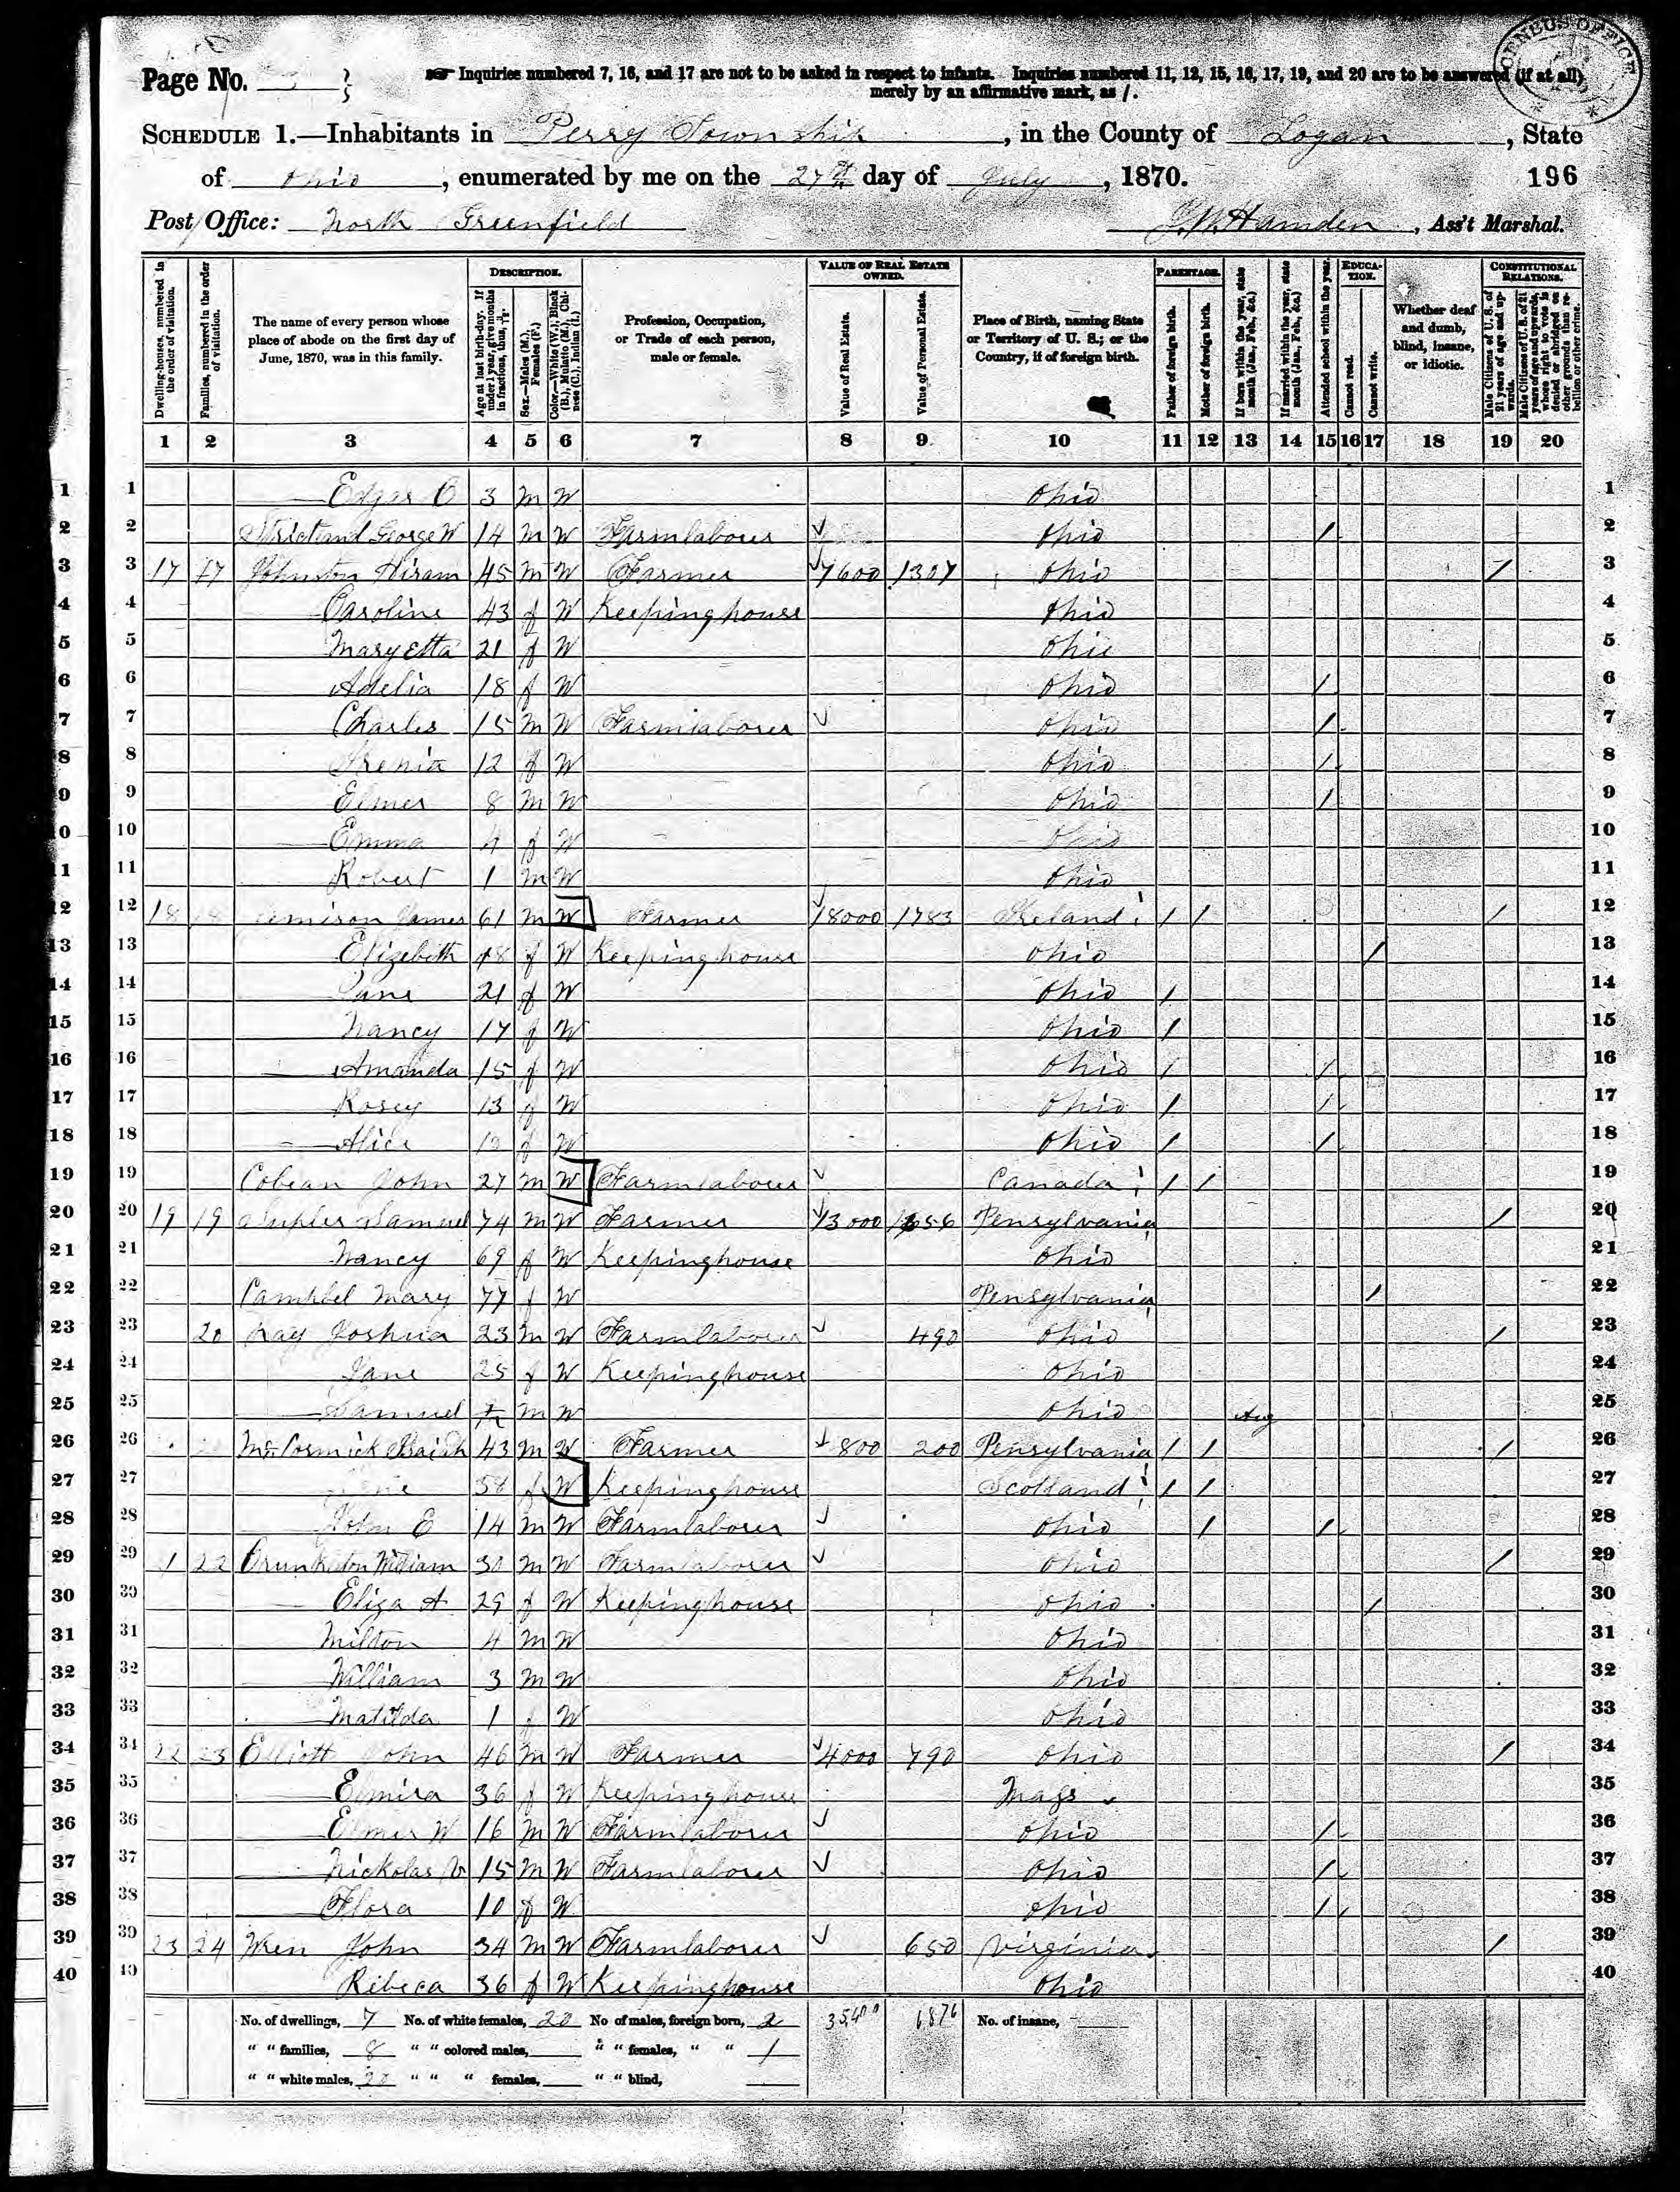 Page No.
☞ Inquiries numbered 7, 16, and 17 are not to be asked in respect to infants. Inquiries numbered 11, 12, 15, 16, 17, 19, and 20 are to be answered (if at all)
merely by an affirmative mark, as /.
CENSUS OFFICE
SCHEDULE 1.—Inhabitants in Perry Township, in the County of Logan, State
of Ohio, enumerated by me on the 27th day of July, 1870.
196
Post Office: North Greenfield
J.W. Hamden, Ass't Marshal.
Dwelling-houses, numbered in the order of visitation.
Families, numbered in the order of visitation.
The name of every person whose place of abode on the first day of June, 1870, was in this family.
DESCRIPTION.
Age at last birth-day. If under 1 year, give months in fractions, thus,
Sex.—Males (M.), Females (F.)
Color.—White (W.), Black (B.), Mulatto (M.), Chinese (C.), Indian (I.)
Profession, Occupation, or Trade of each person, male or female.
VALUE OF REAL ESTATE OWNED.
Value of Real Estate.
Value of Personal Estate.
Place of Birth, naming State or Territory of U. S.; or the Country, if of foreign birth.
PARENTAGE.
Father of foreign birth.
Mother of foreign birth.
If born within the year, state month (Jan., Feb., &c.)
If married within the year, state month (Jan., Feb., &c.)
Attended school within the year.
EDUCATION.
Cannot read.
Cannot write.
Whether deaf and dumb, blind, insane, or idiotic.
CONSTITUTIONAL RELATIONS.
Male Citizens of U. S. of 21 years of age and upwards.
Male Citizens of U. S. of 21 years of age and upwards, whose right to vote is denied or abridged on other grounds than rebellion or other crime.
1 2 3 4 5 6 7 8 9 10 11 12 13 14 15 16 17 18 19 20
1 Edgar O 3 m W Ohio 1
2 George W 14 m W Farmlaborer Ohio / 2
3 17 17 Johnston Hiram 45 m W Farmer 7600 1307 Ohio / 3
4 Caroline 43 f W Keepinghouse Ohio 4
5 Maryetta 21 f W Ohio 5
6 Adelia 18 f W Ohio / 6
7 Charles 15 m W Farmlaborer Ohio / 7
8 12 f W Ohio / 8
9 Elmer 8 m W Ohio / 9
10 Emma 4 f W Ohio 10
11 Robert 1 m W Ohio 11
12 18 18 James 61 m W Farmer 8000 1783 Ireland / / / 12
13 Elizebeth 48 f W Keepinghouse Ohio / 13
14 Jane 21 f W Ohio / 14
15 Nancy 17 f W Ohio / 15
16 Amanda 15 f W Ohio / / 16
17 Rosey 13 f W Ohio / / 17
18 Alice f W Ohio / / 18
19 Cobean John 27 m W Farmlaborer Canada / / 19
20 19 19 Samuel 74 m W Farmer 13000 1656 Pensylvania / 20
21 Nancy 69 f W Keepinghouse Ohio 21
22 Campbel Mary 77 f W Pensylvania / 22
23 20 Ray Joshua 23 m W Farmlaborer 490 Ohio / 23
24 Jane 25 f W Keepinghouse Ohio 24
25 Samuel m W Ohio Aug 25
26 McCormick Isaiah 43 m W Farmer 800 200 Pensylvania / / / 26
27 58 f W Keepinghouse Scotland / / 27
28 John E 14 m W Farmlaborer Ohio / / 28
29 1 22 William 30 m W Farmlaborer Ohio / 29
30 Eliza A 29 f W Keepinghouse Ohio / 30
31 Milton 4 m W Ohio 31
32 William 3 m W Ohio 32
33 Matilda 1 f W Ohio 33
34 22 23 Elliott John 46 m W Farmer 4000 790 Ohio / 34
35 Elmira 36 f W Keepinghouse Mass 35
36 Elmer W 16 m W Farmlaborer Ohio / 36
37 Nickolas V 15 m W Farmlaborer Ohio / 37
38 Flora 10 f W Ohio / 38
39 23 24 Wren John 34 m W Farmlaborer 650 Virginia / 39
40 Rebeca 36 f W Keepinghouse Ohio 40
No. of dwellings, 7 No. of white females, 20 No of males, foreign born, 2 35,400 6876 No. of insane,
" " families, 8 " " colored males, " " females, " " 1
" " white males, 20 " " " females, " " blind,